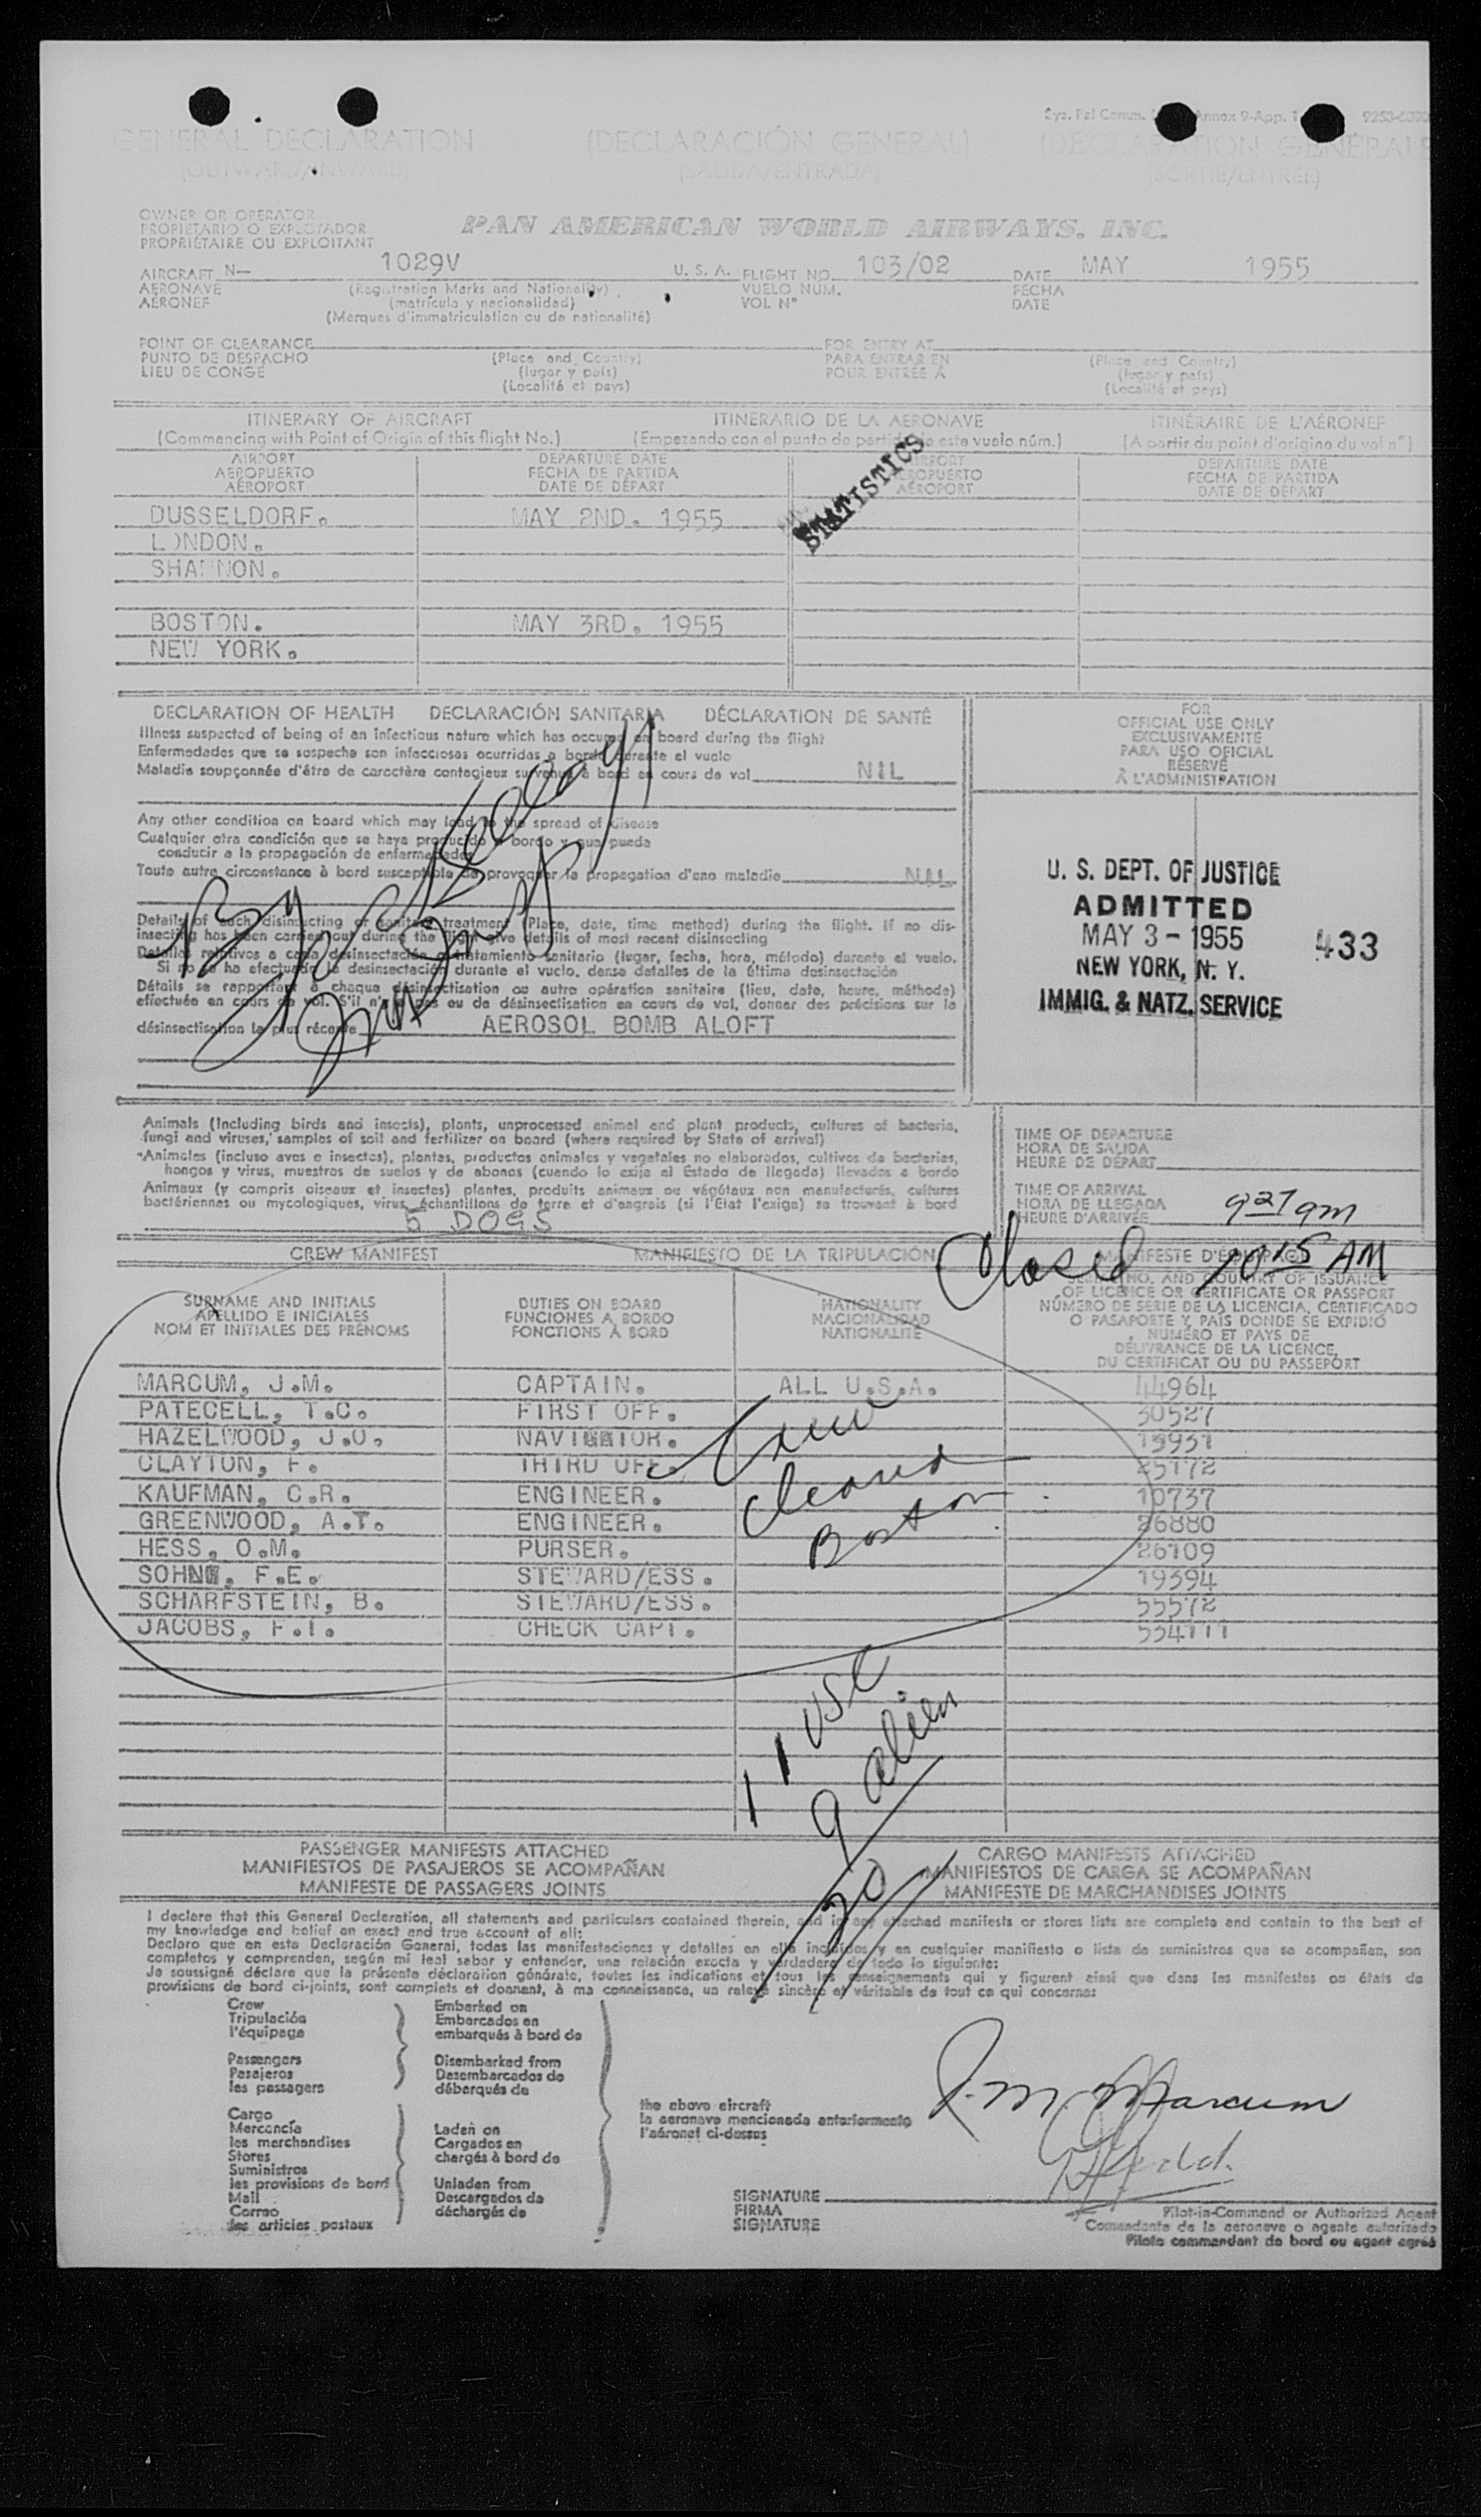 Annex 9-App. 1
GENERAL DECLARATION (DECLARACIÓN GENERAL) (DÉCLARATION GÉNÉRALE)
(OUTWARD/INWARD) (SALIDA/ENTRADA) (SORTIE/ENTRÉE)
OWNER OR OPERATOR
PROPIETARIO O EXPLOTADOR
PROPRIÉTAIRE OU EXPLOITANT
PAN AMERICAN WORLD AIRWAYS, INC.
AIRCRAFT N— 1029V U. S. A. FLIGHT NO. 103/02 DATE MAY 1955
AERONAVE (Registration Marks and Nationality) VUELO NUM. FECHA
AÉRONEF (matrícula y nacionalidad) VOL N° DATE
(Marques d'immatriculation ou de nationalité)
POINT OF CLEARANCE FOR ENTRY AT
PUNTO DE DESPACHO (Place and Country) PARA ENTRAR EN (Place and Country)
LIEU DE CONGÉ (lugar y país) POUR ENTRÉE À (lugar y país)
(Localité et pays) (Localité et pays)
ITINERARY OF AIRCRAFT ITINERARIO DE LA AERONAVE ITINÉRAIRE DE L'AÉRONEF
(Commencing with Point of Origin of this flight No.) (Empezando con el punto de partida de este vuelo núm.) (A partir du point d'origine du vol n°)
AIRPORT DEPARTURE DATE AIRPORT DEPARTURE DATE
AEROPUERTO FECHA DE PARTIDA AEROPUERTO FECHA DE PARTIDA
AÉROPORT DATE DE DÉPART AÉROPORT DATE DE DÉPART
STATISTICS
DUSSELDORF. MAY 2ND. 1955
LONDON.
SHANNON.
BOSTON. MAY 3RD. 1955
NEW YORK.
DECLARATION OF HEALTH DECLARACIÓN SANITARIA DÉCLARATION DE SANTÉ
Illness suspected of being of an infectious nature which has occurred on board during the flight
Enfermedades que se sospecha son infecciosas ocurridas a bordo durante el vuelo
Maladie soupçonnée d'être de caractère contagieux survenue à bord en cours de vol NIL
Any other condition on board which may lead to the spread of disease
Cualquier otra condición que se haya producido a bordo y que pueda
conducir a la propagación de enfermedades
Toute autre circonstance à bord susceptible de provoquer la propagation d'une maladie NIL
Details of each disinsecting or sanitary treatment (Place, date, time method) during the flight. If no dis-
insecting has been carried out during the flight give details of most recent disinsecting
Detalles relativos a cada desinsectación o tratamiento sanitario (lugar, fecha, hora, método) durante el vuelo.
Si no se ha efectuado la desinsectación durante el vuelo, dense detalles de la última desinsectación
Détails se rapportant à chaque désinsectisation ou autre opération sanitaire (lieu, date, heure, méthode)
effectuée en cours de vol. S'il n'y a pas eu de désinsectisation en cours de vol, donner des précisions sur la
désinsectisation la plus récente AEROSOL BOMB ALOFT
FOR
OFFICIAL USE ONLY
EXCLUSIVAMENTE
PARA USO OFICIAL
RÉSERVÉ
À L'ADMINISTRATION
U. S. DEPT. OF JUSTICE
ADMITTED
MAY 3 - 1955 433
NEW YORK, N. Y.
IMMIG. & NATZ. SERVICE
Animals (Including birds and insects), plants, unprocessed animal and plant products, cultures of bacteria,
fungi and viruses, samples of soil and fertilizer on board (where required by State of arrival)
Animales (incluso aves e insectos), plantas, productos animales y vegetales no elaborados, cultivos de bacterias,
hongos y virus, muestras de suelos y de abonos (cuando lo exija el Estado de llegada) llevados a bordo
Animaux (y compris oiseaux et insectes) plantes, produits animaux ou végétaux non manufacturés, cultures
bactériennes ou mycologiques, virus, échantillons de terre et d'engrais (si l'État l'exige) se trouvant à bord
5 DOGS
TIME OF DEPARTURE
HORA DE SALIDA
HEURE DE DÉPART
TIME OF ARRIVAL
HORA DE LLEGADA
HEURE D'ARRIVÉE 927 am
Closed 1015 AM
CREW MANIFEST MANIFIESTO DE LA TRIPULACIÓN MANIFESTE D'ÉQUIPAGE
SURNAME AND INITIALS
APELLIDO E INICIALES
NOM ET INITIALES DES PRÉNOMS
DUTIES ON BOARD
FUNCIONES A BORDO
FONCTIONS À BORD
NATIONALITY
NACIONALIDAD
NATIONALITÉ
SERIAL NO. AND COUNTRY OF ISSUANCE
OF LICENCE OR CERTIFICATE OR PASSPORT
NÚMERO DE SERIE DE LA LICENCIA, CERTIFICADO
O PASAPORTE Y PAÍS DONDE SE EXPIDIÓ
NUMÉRO ET PAYS DE
DÉLIVRANCE DE LA LICENCE,
DU CERTIFICAT OU DU PASSEPORT
MARCUM, J.M. CAPTAIN. ALL U.S.A. 44964
PATECELL, T.C. FIRST OFF. 30527
HAZELWOOD, J.O. NAVIGATOR.
CLAYTON, F. THIRD OFF.
KAUFMAN, C.R. ENGINEER. 10737
GREENWOOD, A.T. ENGINEER. 26880
HESS, O.M. PURSER. 26109
SOHN, F.E. STEWARD/ESS. 19394
SCHARFSTEIN, B. STEWARD/ESS. 55572
JACOBS, F.I. CHECK CAPT.
Crew
Cleared
Boston
11 USC
9 alien
20
PASSENGER MANIFESTS ATTACHED CARGO MANIFESTS ATTACHED
MANIFIESTOS DE PASAJEROS SE ACOMPAÑAN MANIFIESTOS DE CARGA SE ACOMPAÑAN
MANIFESTE DE PASSAGERS JOINTS MANIFESTE DE MARCHANDISES JOINTS
I declare that this General Declaration, all statements and particulars contained therein, and in any attached manifests or stores lists are complete and contain to the best of
my knowledge and belief an exact and true account of all:
Declaro que en esta Declaración General, todas las manifestaciones y detalles en ella incluidos y en cualquier manifiesto o lista de suministros que se acompañan, son
completos y comprenden, según mi leal saber y entender, una relación exacta y verdadera de todo lo siguiente:
Je soussigné déclare que la présente déclaration générale, toutes les indications et tous les renseignements qui y figurent ainsi que dans les manifestes ou états de
provisions de bord ci-joints, sont complets et donnent, à ma connaissance, un relevé sincère et véritable de tout ce qui concerne:
Crew Embarked on
Tripulación Embarcados en
l'équipage embarqués à bord de
Passengers Disembarked from
Pasajeros Desembarcados de
les passagers débarqués de
Cargo
Mercancía Laden on
les marchandises Cargados en
Stores chargés à bord de
Suministros
les provisions de bord Unladen from
Mail Descargados de
Correo déchargés de
les articles postaux
the above aircraft
la aeronave mencionada anteriormente
l'aéronef ci-dessus
J. M. Marcum
SIGNATURE
FIRMA
SIGNATURE
Pilot-in-Command or Authorized Agent
Comandante de la aeronave o agente autorizado
Pilote commandant de bord ou agent agréé